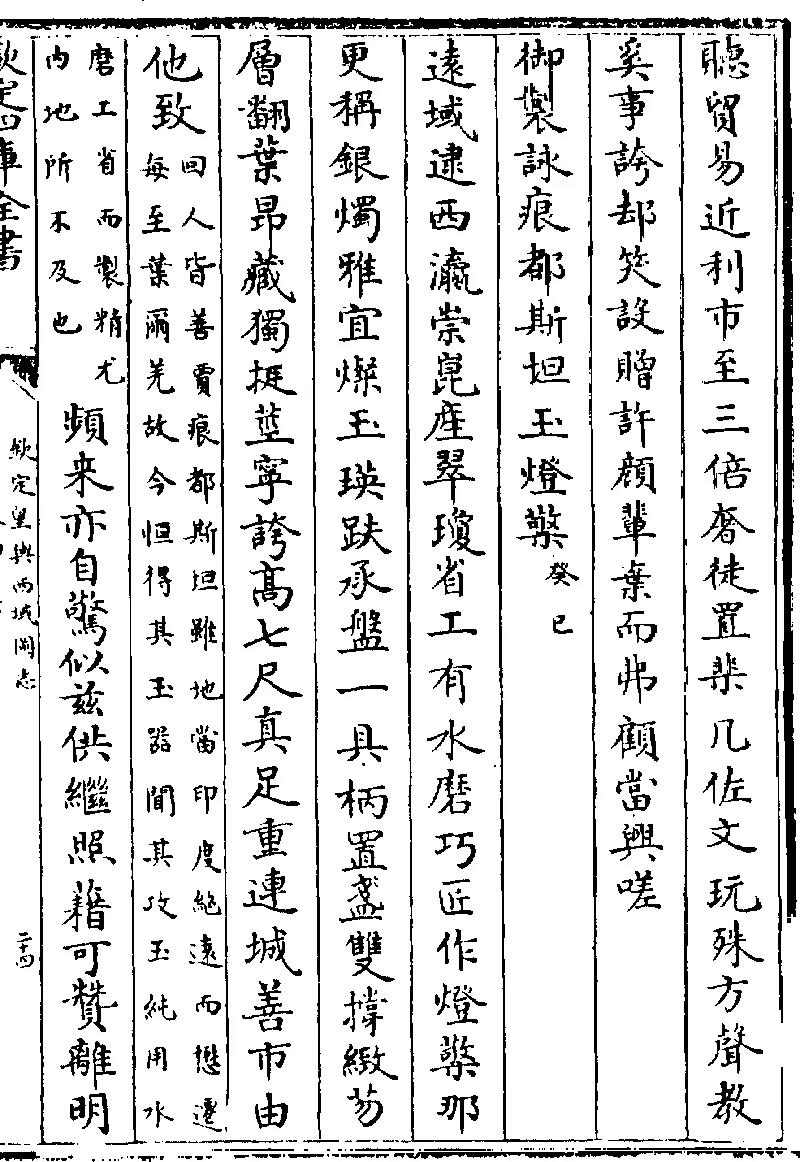 聽貿易近利市至三倍奢徒置棐几佐文玩殊方聲教
奚事誇却笑設贈許顔輩棄而弗顧當興嗟
御製詠痕都斯坦玉燈檠癸巳
遠域逮西瀛崇崑産翠瓊省工有水磨巧匠作燈檠那
更稱銀燭雅宜燦玉瑛趺承盤一具柄置盞雙撐緻芴
層翻葉昂藏獨挺莖寧誇高七尺真足重連城善市由
他致回人皆善賈痕都斯坦雖地當印度絶遠而懋遷
每至葉爾羌故今恒得其玉器聞其攻玉純用水
磨工省而製精尤
内地所不及也頻来亦自驚似兹供繼照藉可贊離明
欽定四庫全書
欽定皇輿西域圖志
二十四